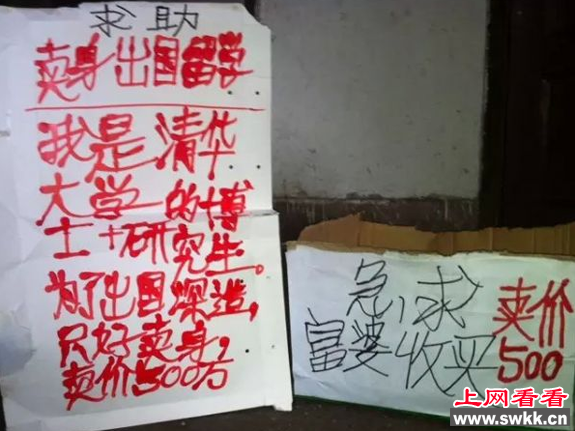 求助
卖身出国留学
我是清华
大学的博
士+研究生。
为了出国深造,
只好卖身,
卖价500万
急求
富婆收买
卖价
500
上网看看
www.swkk.cn